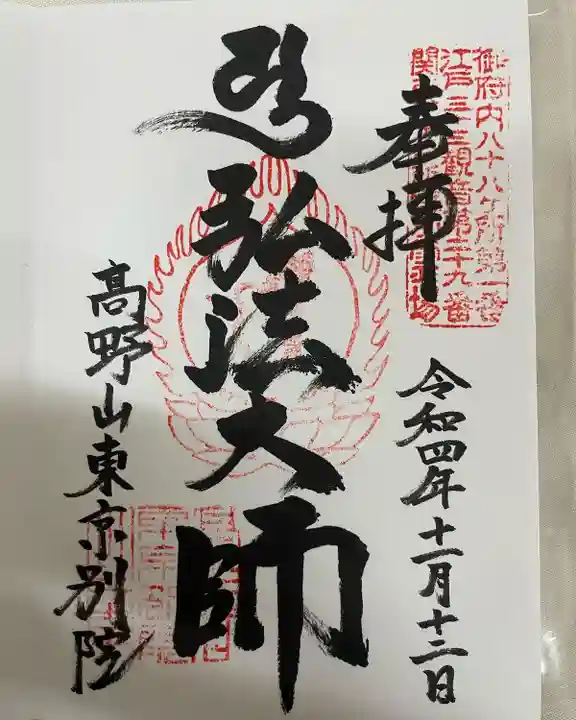 御府内八十八ヶ所第一番
江戸三三観音第二十九番
奉拝
令和四年十一月十二日
弘法大師
高野山東京別院